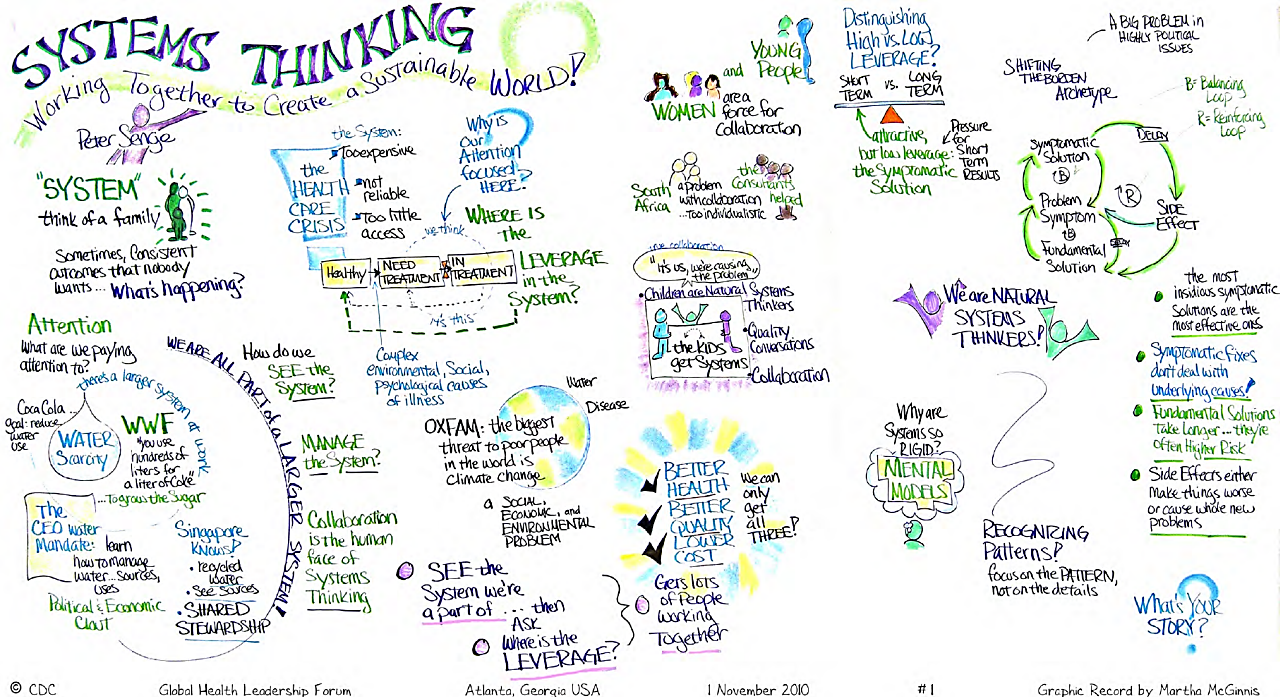 SYSTEMS THINKING
Working Together to Create a Sustainable WORLD!
Peter Senge
"SYSTEM"
think of a family
Sometimes, Consistent
outcomes that nobody
wants... What's happening?
the System:
the
HEALTH
CARE
CRISIS
Too expensive
not
reliable
Too little
access
Why is
Our
Attention
focused
HERE?
we think
WHERE IS
the
LEVERAGE
in the
System?
Healthy
NEED
TREATMENT
IN
TREATMENT
It's this
Complex
environmental, Social,
psychological causes
of illness
Attention
What are we paying
attention to?
there's a larger system at work
Coca Cola...
goal: reduce
water
use
WATER
Scarcity
WWF
"you use
hundreds of
liters for
a liter of Coke"
...to grow the Sugar
The
CEO water
Mandate: learn
how to manage
water... sources,
uses
Political & Economic
Clout
Singapore
knows!
• recycled
water
• See Sources
• SHARED
STEWARDSHIP
WE ARE ALL PART of a LARGER SYSTEM!
How do we
SEE the
System?
MANAGE
the System?
Collaboration
is the human
face of
Systems
Thinking
Water
Disease
OXFAM: the biggest
threat to poor people
in the world is
climate change
a SOCIAL,
ECONOMIC, and
ENVIRONMENTAL
PROBLEM
SEE the
System we're
a part of ... then
ASK
Where is the
LEVERAGE?
Gets lots
of People
working
Together
YOUNG
and People
WOMEN are a
force for
Collaboration
South
Africa
a problem
with collaboration
...too individualistic
the
Consultants
helped
true collaboration
"It's us, we're causing
the problem"
• Children are Natural Systems
Thinkers
the KIDS
get Systems
• Quality
Conversations
• Collaboration
BETTER
HEALTH
BETTER
QUALITY
LOWER
COST
We can
only
get
all
THREE?
Distinguishing
High vs. Low
LEVERAGE?
SHORT
TERM vs. LONG
TERM
attractive,
but low leverage:
the Symptomatic
Solution
Pressure
for
Short
Term
RESULTS
A BIG PROBLEM in
HIGHLY POLITICAL
ISSUES
SHIFTING
THE BURDEN
Archetype
B= Balancing
Loop
R= Reinforcing
Loop
Symptomatic
Solution
B
DELAY
R
Problem
Symptom
B
SIDE
EFFECT
DELAY
Fundamental
Solution
We are NATURAL
SYSTEMS
THINKERS!
the most
insidious symptomatic
Solutions are the
most effective ones
Symptomatic Fixes
don't deal with
underlying causes!
Fundamental Solutions
take Longer... they're
often Higher Risk
Side Effects either
make things worse
or cause whole new
problems
Why are
Systems so
RIGID?
MENTAL
MODELS
RECOGNIZING
Patterns!
focus on the PATTERN,
not on the details
What's YOUR
STORY?
© CDC Global Health Leadership Forum Atlanta, Georgia USA 1 November 2010 #1 Graphic Record by Martha McGinnis